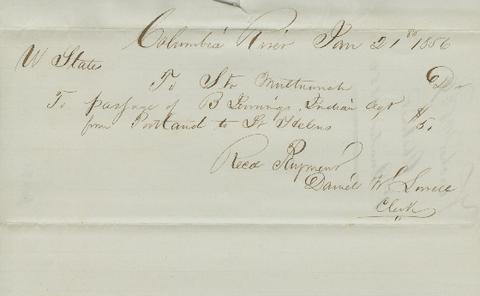 Columbia River Jan 21st 1856
U States
To Str Multnomah Dr
To passage of B Jennings, Indian Agt
from Portland to St Helens $5.
Recd Payment
Daniel W.
Clerk